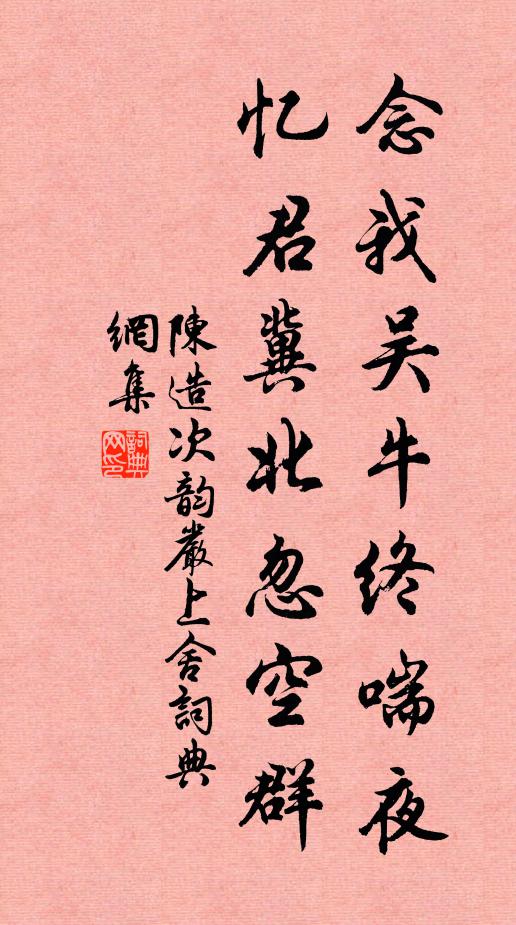 念我吴牛终喘夜
忆君冀北忽空群
陳造次韵嚴上舍詞典
網集
詞典网印